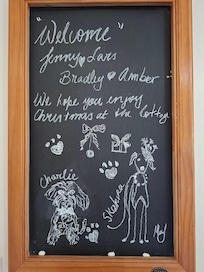 Welcome"
Jenny Lars
Bradley Amber
We hope you enjoy
Christmas at the Cottage
Charlie